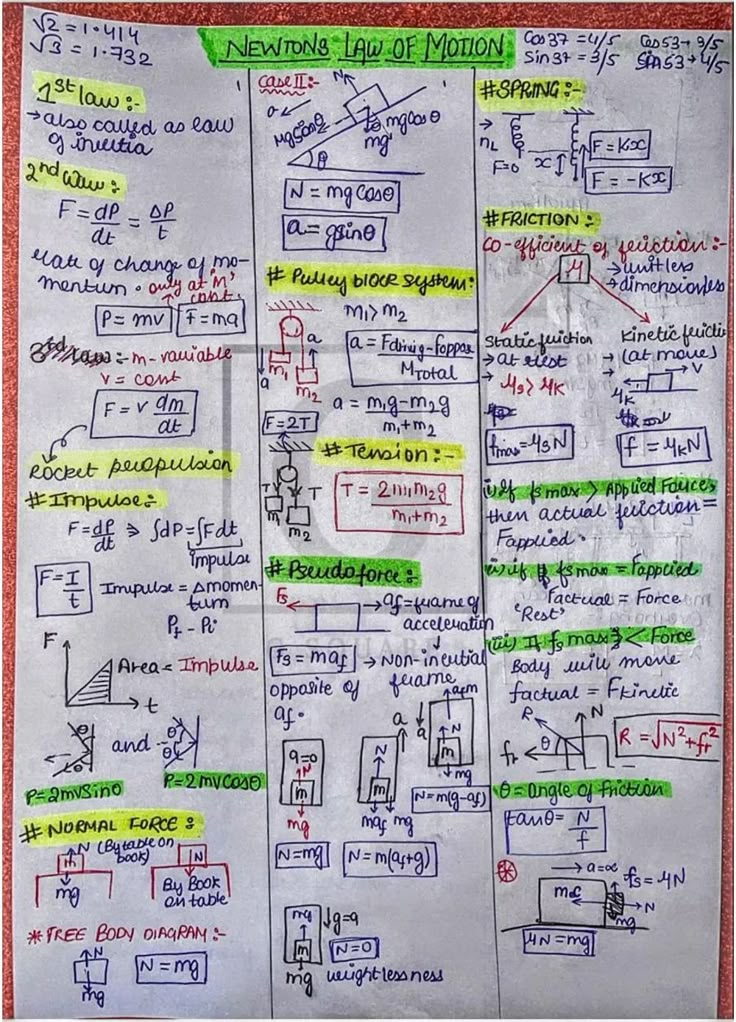 √2 = 1.414
√3 = 1.732
NEWTONS LAW OF MOTION
Cos37 = 4/5
Sin37 = 3/5
Cos53 → 3/5
Sin53 → 4/5
1st law :-
→ also called as law
of inertia
2nd law :
F = dP/dt = ΔP/t
rate of change of mo-
mentum. only at 'm'
const.
P = mv
F = ma
3rd law :- m - variable
v = const
F = v dm/dt
Rocket propulsion
# Impulse :-
F = dP/dt ⇒ ∫dP = ∫F dt
impulse
F = I/t
Impulse = Δmomen-
tum
Pf - Pi
F
Area = Impulse
t
θ
θ
and
θ
θ
P=2mvSinθ
P=2mvCosθ
# NORMAL FORCE :
N (By table on
book)
m
mg
N
By Book
on table
* FREE BODY DIAGRAM :-
N
mg
N = mg
Case II :-
N
a
mgSinθ
mgCosθ
θ
mg
θ
N = mgCosθ
a = gsinθ
# Pulley block system :
m1 > m2
a
m1
m2
a
a = Fdriving - Foppos / MTotal
a = m1g - m2g / m1 + m2
F = 2T
# Tension :-
T
T
m1
m2
T = 2m1m2g / m1 + m2
# Pseudo force :-
Fs
af = frame of
acceleration
Fs = maf
→ Non-inertial
frame
opposite of
af.
a=0
N
m
mg
N
m
a
maf mg
a
afm
N
m
mg
N = m(g-af)
N = mg
N = m(af+g)
mg
m
mg
↓g = a
N = 0
weightlessness
# SPRING :-
F=0
x
F = Kx
F = -Kx
# FRICTION :-
Co-efficient of friction :-
μ
→ unitless
→ dimensionless
Static friction
→ at rest
→ μs > μK
fmax = μsN
Kinetic fricti
→ (at move)
→
V
μK
f = μKN
(i) If fs max > Applied Forces
then actual friction =
Fapplied.
(ii) if fs max = Fapplied
Factual = Force
'Rest'
(iii) If fs max < Force
Body will move
factual = Fkinetic
R
N
fr
θ
R = √N²+fr²
θ = Angle of friction
tanθ = N/f
*
→ a=∝
fs = μN
N
mg
μN = mg